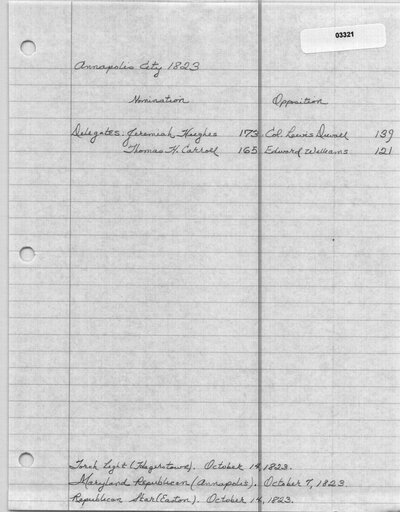 03321
Annapolis City 1823
Nomination Opposition
Delegates: Jeremiah Hughes 173 Col. Lewis Duvall 139
Thomas H. Carroll 165 Edward Williams 121
Torch Light (Hagerstown). October 14, 1823.
Maryland Republican (Annapolis). October 7, 1823.
Republican Star (Easton). October 14, 1823.